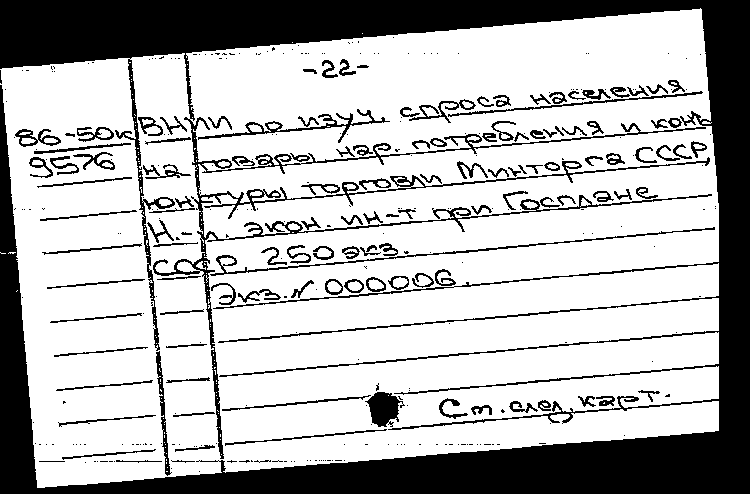 -22-
86-50к ВНИИ по изуч. спроса населения
9576 на товары нар. потребления и конъ
юнктуры торговли Минторга СССР,
Н.-и. экон. ин-т при Госплане
СССР. 250 экз.
Экз. № 000006.
См. след. карт.